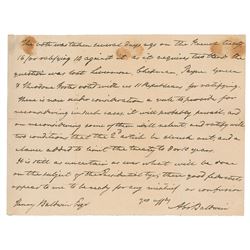 The vote was taken several days ago on the French treaty
16 for ratifying 14 against it as it requires two thirds the
question was lost Livermore Chipman, Paine Greene
& Foster voted with us 11 Republicans for ratifying.
There is now under consideration a vote to provide for
reconsidering in such cases. it will probably prevail, and
on reconsidering some of them will relent and ratify with
two conditions that the 2d article be struck out, and a
clause added to limit the treaty to 8 or 10 years.
It is still as uncertain as ever what will be done
on the subject of the Presidential these good federalists
appear to me to be ready for any mischief or confusion
Henry Baldwin Esqr
yrs affly
Ab. Baldwin